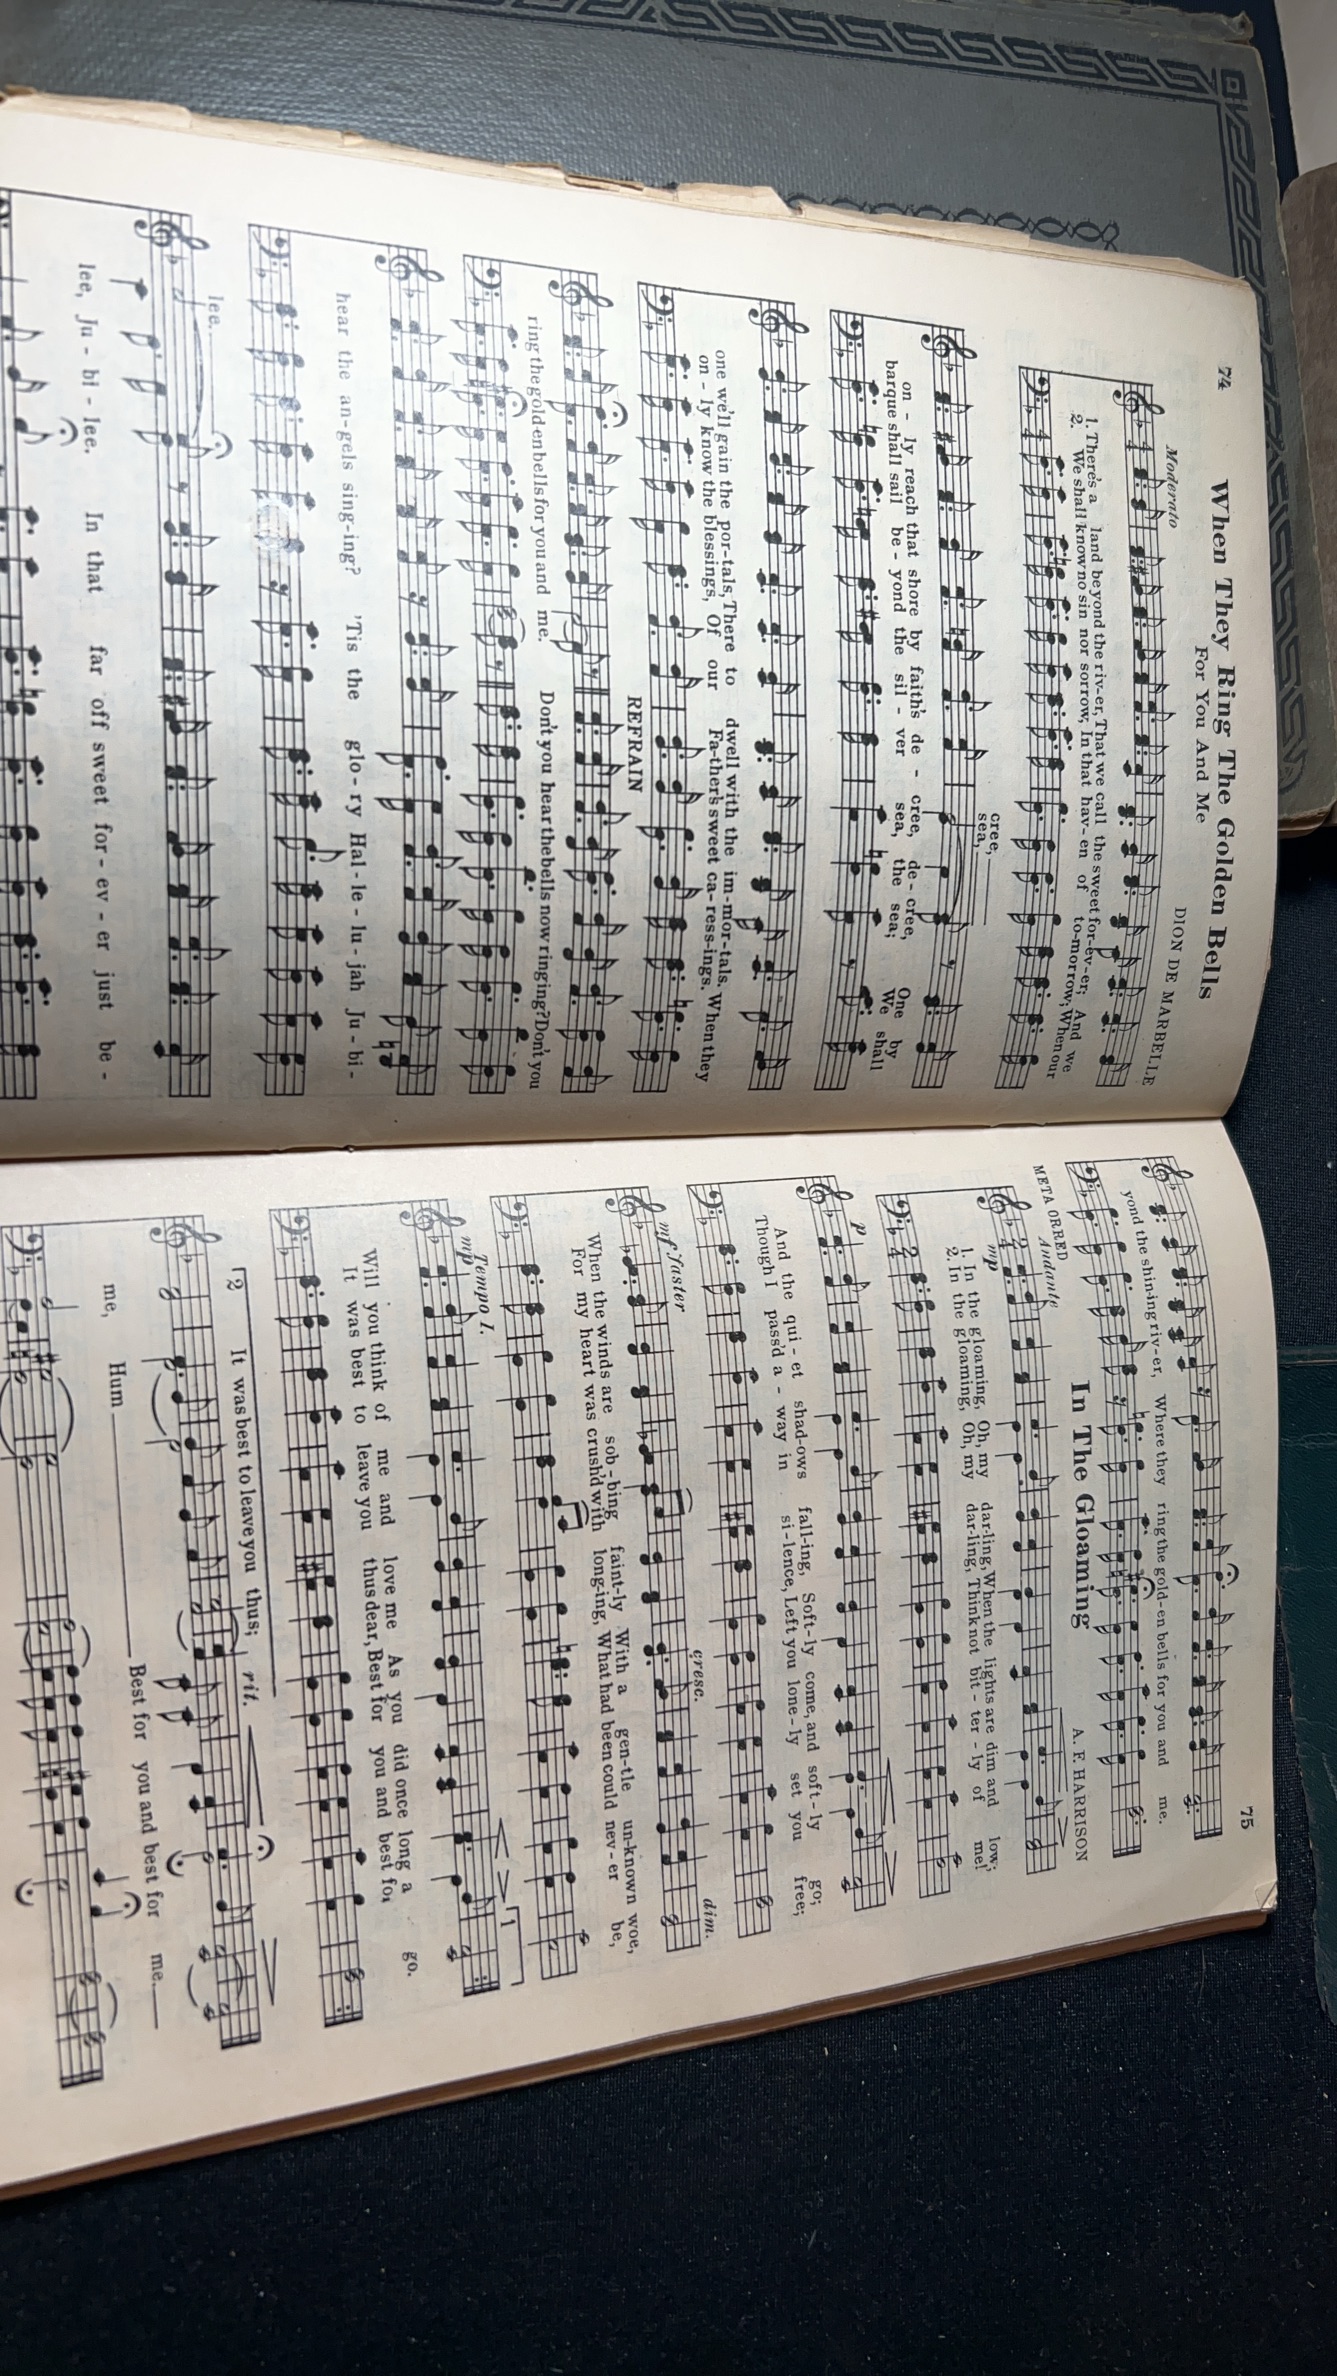 74
When They Ring The Golden Bells
For You And Me
Moderato
DION DE MARBELLE
1. There's a land beyond the riv-er, That we call the sweet for-ev-er; And we
2. We shall know no sin nor sorrow, In that hav-en of to-morrow; When our
cree,
sea,
on - ly reach that shore by faith's de - cree, de-cree, One by
barque shall sail be - yond the sil - ver sea, the sea; We shall
one we'll gain the por-tals, There to dwell with the im-mor-tals. When they
on - ly know the blessings, Of our Fa-ther's sweet ca-ress-ings.
REFRAIN
ring the gold-en bells for you and me. Don't you hear the bells now ringing? Don't you
hear the an-gels sing-ing? 'Tis the glo-ry Hal-le-lu-jah Ju-bi-
lee.
lee, Ju-bi-lee. In that far off sweet for-ev-er just be-
75
yond the shin-ing riv-er, Where they ring the gold-en bells for you and me.
In The Gloaming
META ORRED
A. F. HARRISON
Andante
mp
1. In the gloaming, Oh, my dar-ling, When the lights are dim and low;
2. In the gloaming, Oh, my dar-ling, Think not bit-ter-ly of me!
p
And the qui-et shad-ows fall-ing, Soft-ly come, and soft-ly go;
Though I pass'd a-way in si-lence, Left you lone-ly set you free;
mf faster
cresc.
dim.
When the winds are sob-bing faint-ly With a gen-tle un-known woe,
For my heart was crush'd with long-ing, What had been could nev-er be,
Tempo I.
mp
1
Will you think of me and love me As you did once long a go.
It was best to leave you thus dear, Best for you and best for
2
It was best to leave you thus; rit.
me, Hum Best for you and best for me.